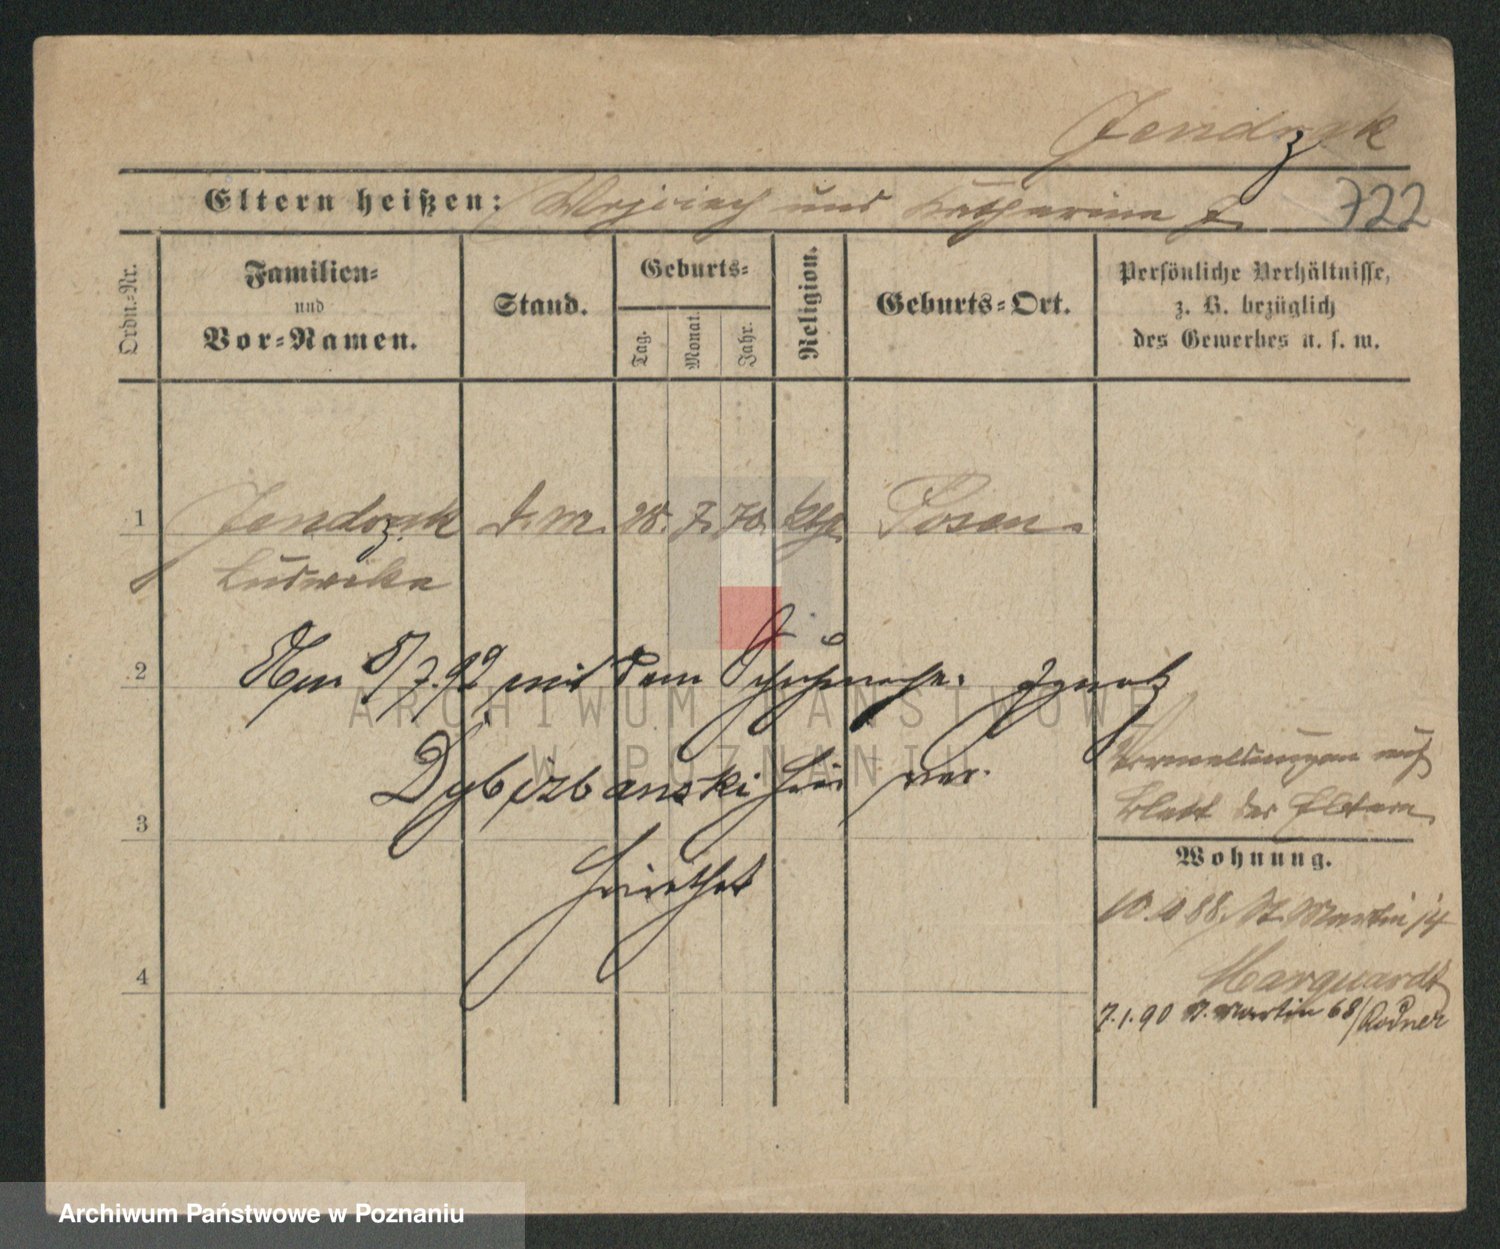 Jendrzak
Eltern heißen: Wojciech und Katharina
722
Ordn.-Nr.
Familien-
und
Vor-Namen.
Stand.
Geburts-
Tag.
Monat.
Jahr.
Religion.
Geburts-Ort.
Persönliche Verhältnisse,
z. B. bezüglich
des Gewerbes u. s. w.
1 Jendrzak 28. 7. 70. kth. Posen.
Ludwika
2 7. 92 mit dem Schuhmach. Ignatz
Dybizbanski hier ver-
heirathet
3
4
Vermeldungen auf
Blatt der Eltern
Wohnung.
10. 10 88. St. Martin 14
Marquardt
7. 1. 90 St. Martin 68/ Rodner
ARCHIWUM PAŃSTWOWE
W POZNANIU
Archiwum Państwowe w Poznaniu